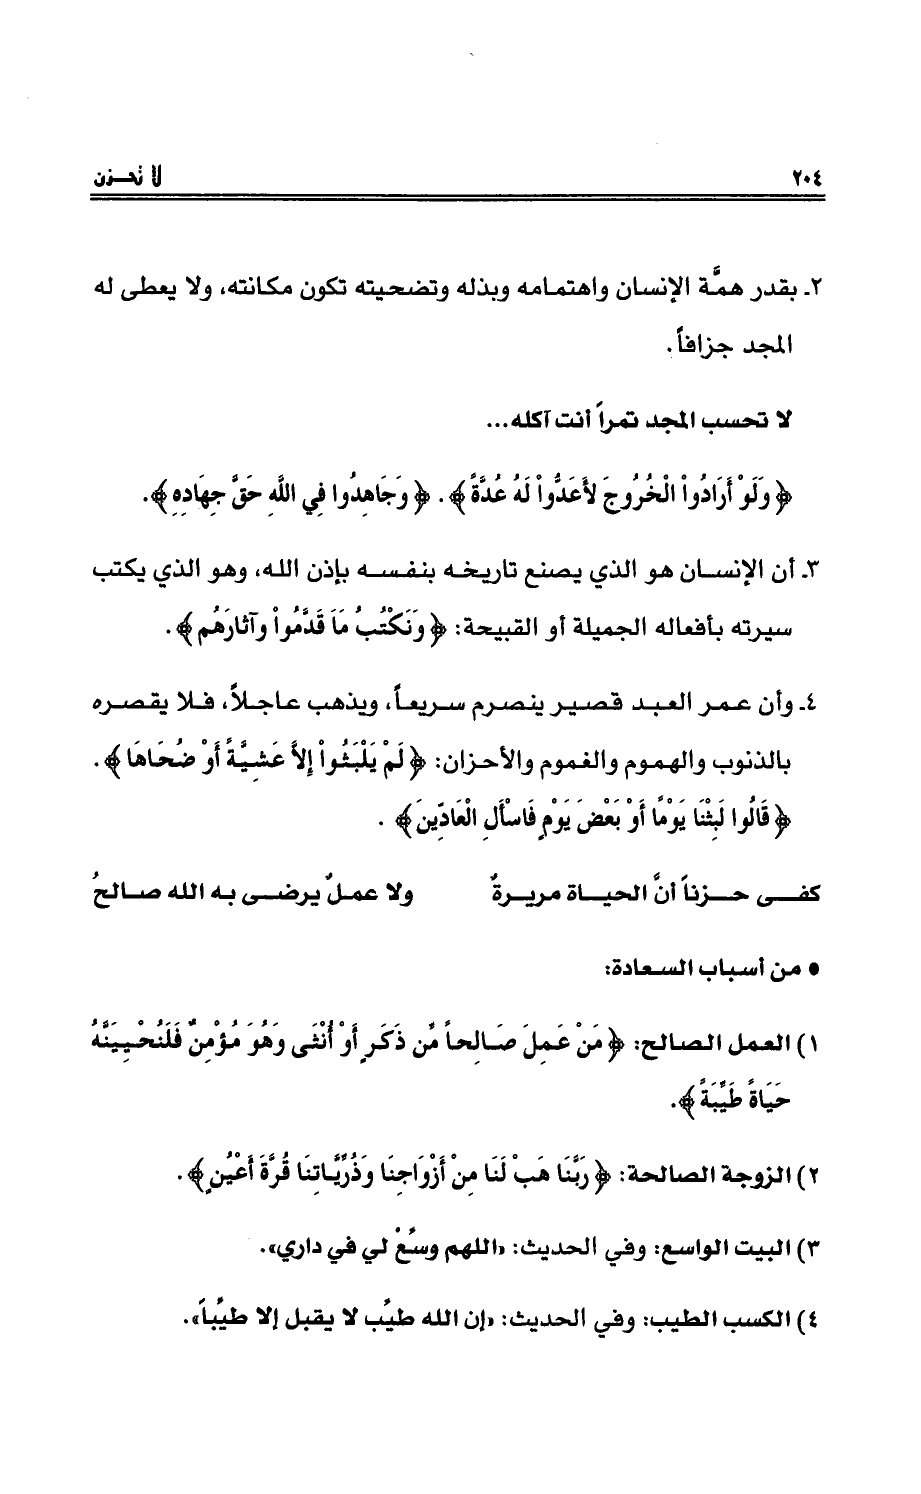 ٢٠٤ لا تحـزن
٢ـ بقدر همَّة الإنسان واهتمامه وبذله وتضحيته تكون مكانته، ولا يعطى له
المجد جزافاً.
لا تحسب المجد تمراً أنت آكله...
﴿ وَلَوْ أَرَادُواْ الْخُرُوجَ لأَعَدُّواْ لَهُ عُدَّةً ﴾. ﴿ وَجَاهِدُوا فِي اللَّهِ حَقَّ جِهَادِهِ ﴾.
٣ـ أن الإنسـان هو الذي يصنع تاريخـه بنفسـه بإذن الله، وهو الذي يكتب
سيرته بأفعاله الجميلة أو القبيحة: ﴿ وَنَكْتُبُ مَا قَدَّمُواْ وآثَارَهُم ﴾.
٤ـ وأن عـمـر العـبـد قـصـيـر ينـصـرم سـريعـاً، ويذهب عـاجـلاً، فـلا يقـصـره
بالذنوب والهموم والغموم والأحزان: ﴿ لَمْ يَلْبَثُواْ إِلاَّ عَشِيَّةً أَوْ ضُحَاهَا ﴾.
﴿ قَالُوا لَبِثْنَا يَوْمًا أَوْ بَعْضَ يَوْمٍ فَاسْأَلِ الْعَادِّينَ ﴾ .
كفـــى حـــزناً أنَّ الحيـــاة مريـــرةٌ ولا عمـلٌ يرضـــى بـه الله صـالحُ
● من أسباب السعادة:
١) العمل الصالح: ﴿ مَنْ عَمِلَ صَـالِحاً مِّن ذَكَرٍ أَوْ أُنْثَى وَهُوَ مُؤْمِنٌ فَلَنُحْـيِيَنَّهُ
حَيَاةً طَيِّبَةً ﴾.
٢) الزوجة الصالحة: ﴿ رَبَّنَا هَبْ لَنَا مِنْ أَزْوَاجِنَا وَذُرِّيَّاتِنَا قُرَّةَ أَعْيُنٍ ﴾.
٣) البيت الواسع: وفي الحديث: «اللهم وسِّعْ لي في داري».
٤) الكسب الطيب: وفي الحديث: «إن الله طيِّب لا يقبل إلا طيِّباً».